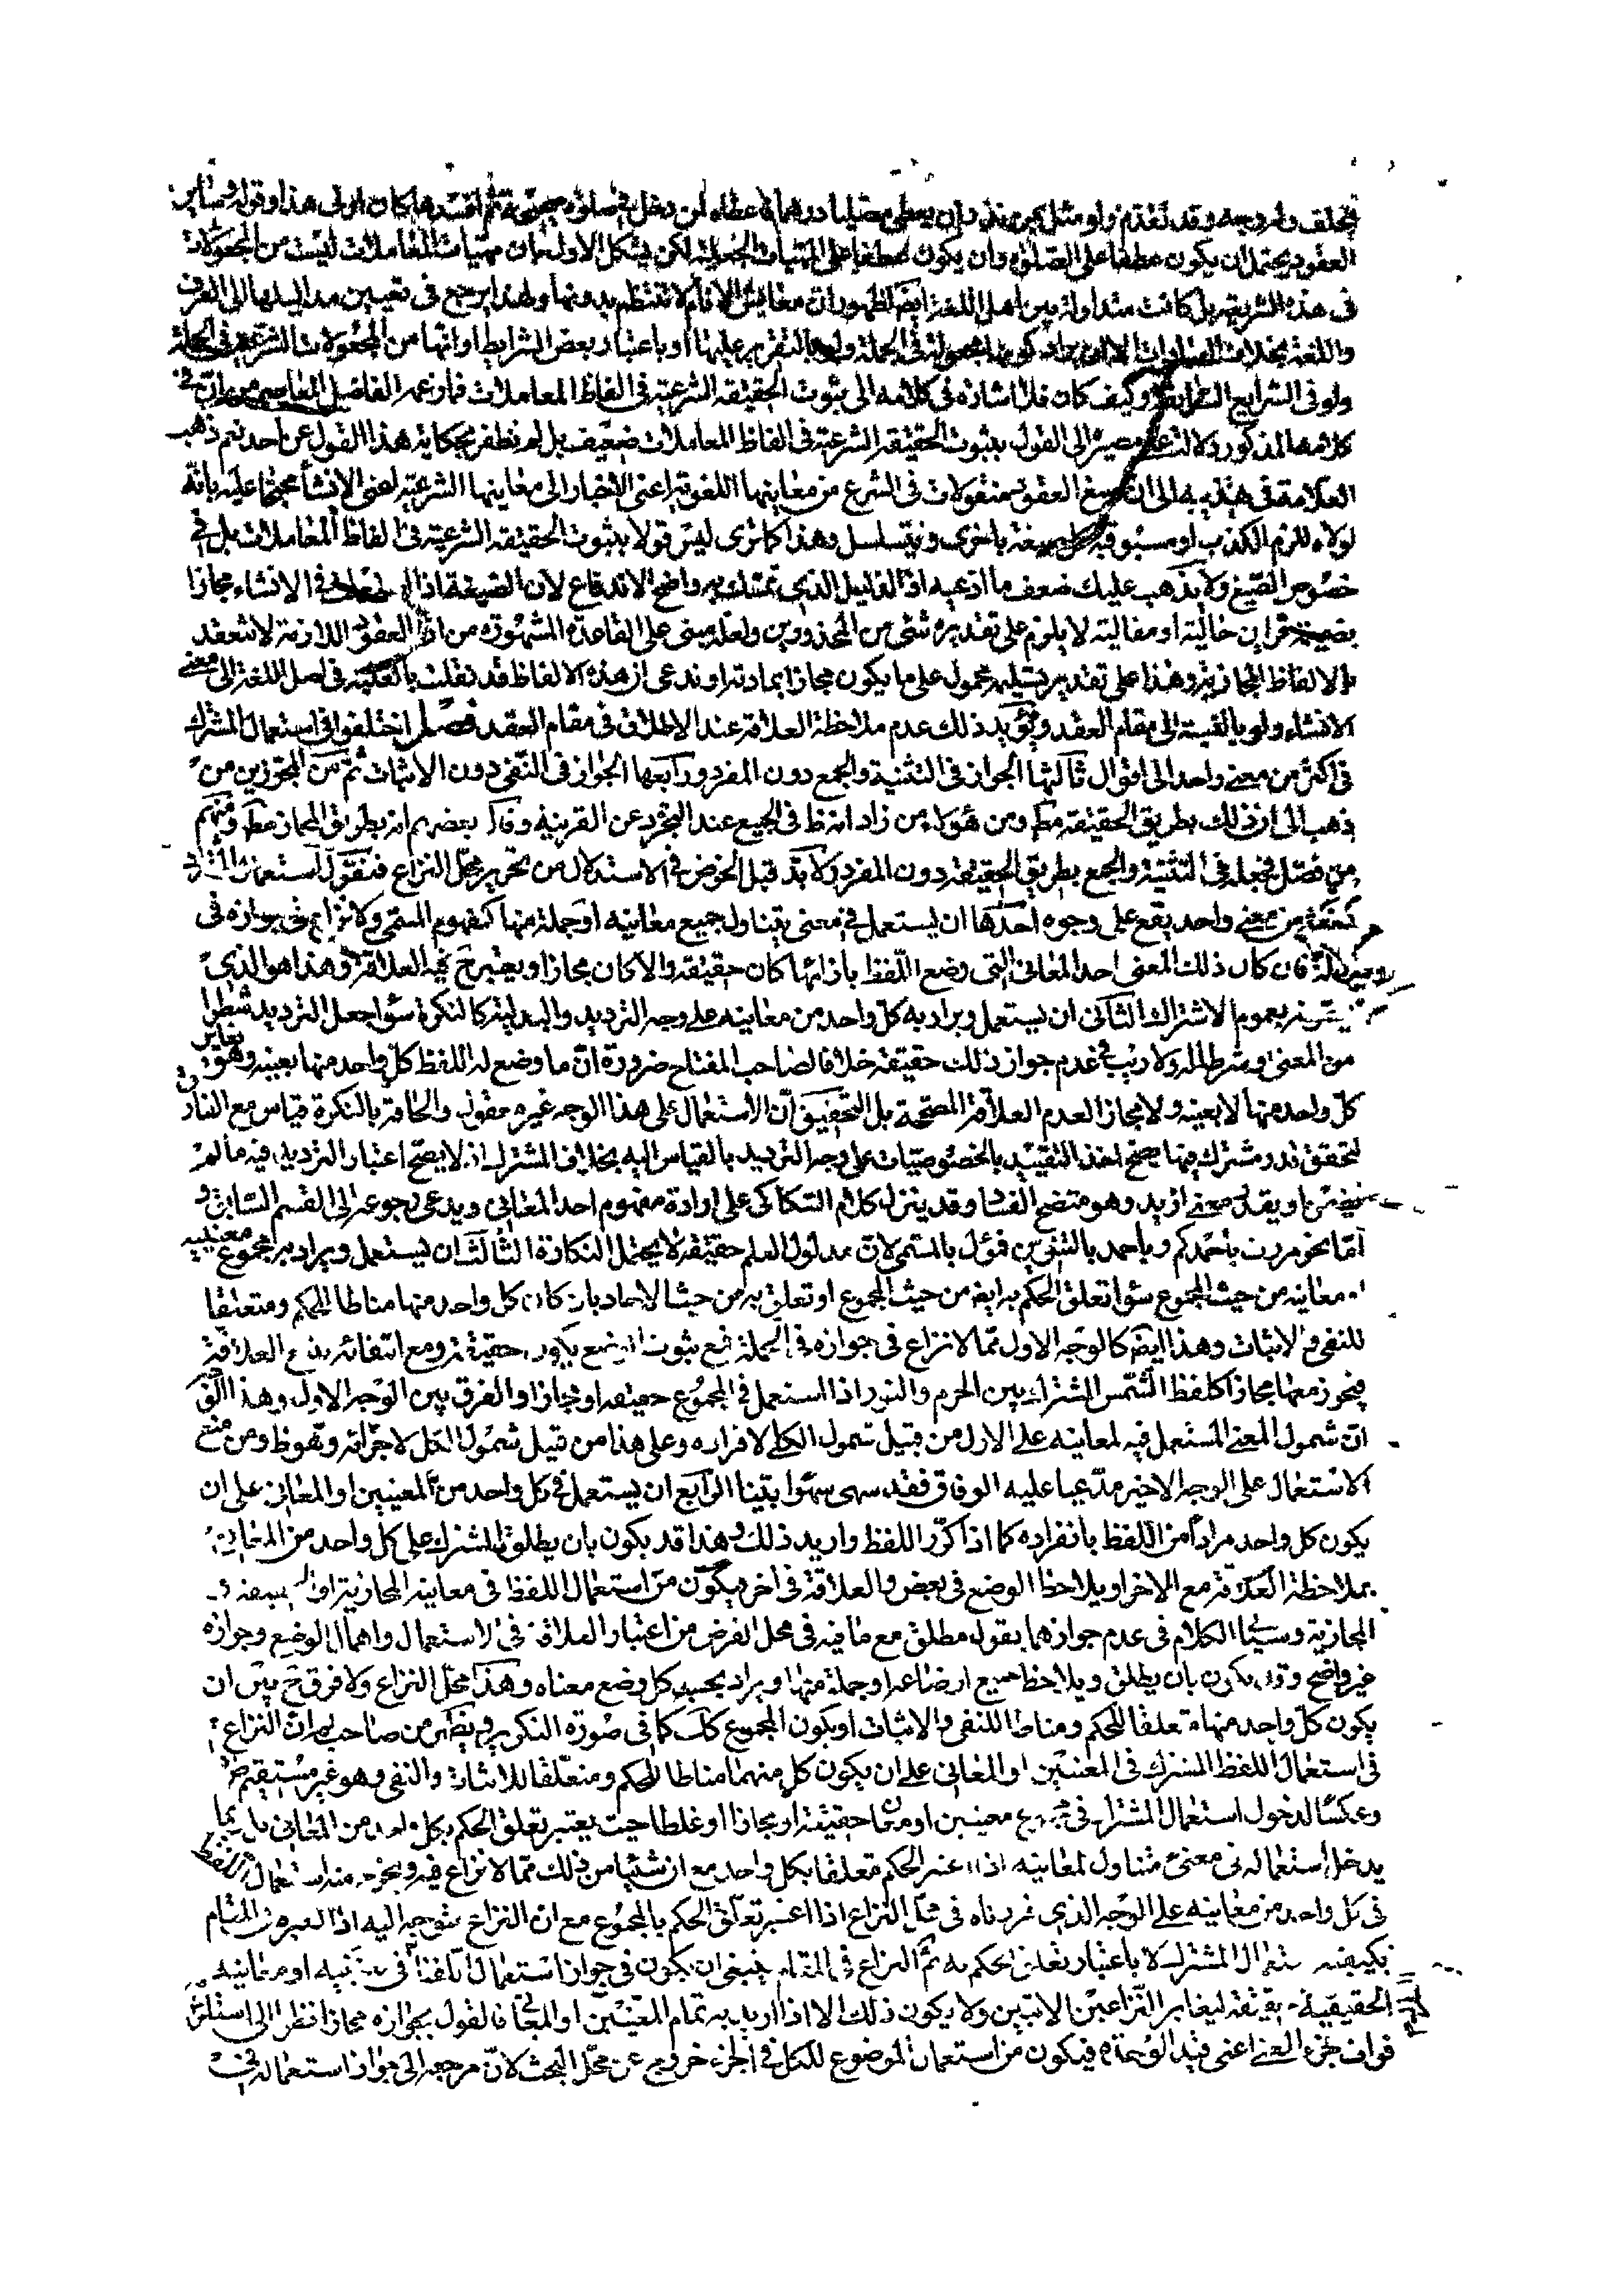 فيخلف ولو وجبه وقد تقدم ولو مثل بمن نذر ان يعطى مصليا درهما فاعطاه لمن دخل في صلوة صحيحة ثم افسدها كان اولى هذا وقوله وساير
العقود يحتمل ان يكون عطفا على الصلوة وان يكون عطفا على المهيات الجعلية لكن يشكل الاول بان مهيات المعاملات ليست من المجعولات
فى هذه الشريعة بل كانت متداولة بين اهل اللغة ايضا لظهور ان معايش الانام لا تنتظم بدونها ولهذا يرجع فى تعيين مداليلها الى العرف
واللغة بخلاف العبادات الا ان يراد كونها مجعولة فى الجملة ولو بالتقرير عليها او باعتبار بعض الشرايط او انها من المجعولات الشرعية فى الجملة
ولو فى الشرايع السابقة وكيف كان فلا اشارة فى كلامه الى ثبوت الحقيقة الشرعية فى الفاظ المعاملات فما زعمه الفاضل المعاصر من ان فى
كلامه المذكور دلالة على مصيره الى القول بثبوت الحقيقة الشرعية فى الفاظ المعاملات ضعيف بل لم نظفر بحكاية هذا القول عن احد نعم ذهب
العلامة فى تهذيبه الى ان صيغ العقود منقولات فى الشرع من معاينها اللغوية اعنى الاخبار الى معاينها الشرعية اعنى الانشاء محتجا عليه بانه
لولاه للزم الكذب او مسبوقية كل صيغة باخرى ويتسلسل وهذا كما ترى ليس قولا بثبوت الحقيقة الشرعية فى الفاظ المعاملات بل فى
خصوص الصيغ ولا يذهب عليك ضعف ما ادعيه اذ الدليل الذى تمسك به واضح الاندفاع لان الصيغة اذا استعملت فى الانشاء مجازا
بضميمة قراين حالية او مقالية لا يلزم على تقديره شئ من المحذورين ولعله مبنى على القاعدة المشهورة من ان العقود اللازمة لا تنعقد
بالالفاظ المجازية وهذا على تقدير تسليمه محمول على ما يكون مجازا بمادته او ندعى ان هذه الالفاظ قد نقلت بالغلبة فى اصل اللغة الى معنى
الانشاء ولو بالنسبة الى مقام العقد ويؤيد ذلك عدم ملاحظة العلاقة عند الاطلاق فى مقام العقد فصل اختلفوا فى استعمال المشترك
فى اكثر من معنى واحد الى اقوال ثالثها الجواز فى التثنية والجمع دون المفرد ورابعها الجواز فى النفى دون الاثبات ثم من المجوزين من
ذهب الى ان ذلك بطريق الحقيقة مط ومن هؤلاء من زاد انه ظ فى الجميع عند التجرد عن القرينة وقال بعضهم انه بطريق المجاز مط ومنهم
من فصل فجعله فى التثنية والجمع بطريق الحقيقة دون المفرد ولا بد قبل الخوض فى الاستدلال من تحرير محل النزاع فنقول استعمال المشترك
من معنى واحد يقع على وجوه احدها ان يستعمل فى معنى يتناول جميع معانيه او جملة منها كمفهوم المسمى ولا نزاع فى جوازه فى
فان كان ذلك المعنى احد المعانى التى وضع اللفظ بازائها كان حقيقة والا كان مجازا ويعتبر ح فيه العلاقة وهذا هو الذى
بعموم الاشتراك الثانى ان يستعمل ويراد به كل واحد من معانيه على وجه الترديد والبدلية كالنكرة سواء جعل الترديد شطرا
من المعنى او شرطا له ولا ريب فى عدم جواز ذلك حقيقة خلافا لصاحب المفتاح ضرورة ان ما وضع له اللفظ كل واحد منها بعينه وهو يغاير
كل واحد منها لا بعينه ولا مجازا لعدم العلاقة المصححة بل التحقيق ان الاستعمال على هذا الوجه غير معقول والحاقه بالنكرة قياس مع الفارق
لتحقق قدر مشترك فيها يصح اخذ التقييد بالخصوصيات على وجه الترديد بالقياس اليه بخلاف المشترك اذ لا يصح اعتبار الترديد فيه ما لم
او يقدر معنى ازيد وهو متضح الفساد وقد ينزل كلام السكاكى على ارادة مفهوم احد المعانى ويدعى رجوعه الى القسم السابق و
اما نحو مررت باحمدكم وباحمد بالتنوين فمؤل بالمسمى لان مدلول العلم حقيقة لا يحتمل النكارة الثالث ان يستعمل ويراد به مجموع معنييه
او معانيه من حيث المجموع سواء تعلق الحكم به ايضا من حيث المجموع او تعلق به من حيث الاحاد بان كان كل واحد منها مناطا للحكم ومتعلقا
للنفى والاثبات وهذا ايضا كالوجه الاول مما لا نزاع فى جوازه فى الجملة فمع ثبوت الوضع يكون حقيقة ومع انتفائه العلاقة
فيجوز معها مجازا كلفظ الشمس المشترك بين الجرم والنور اذا استعمل فى المجموع حقيقة او مجازا والفرق بين الوجه الاول وهذا الوجه
ان شمول المعنى المستعمل فيه لمعانيه على الاول من قبيل شمول الكلى لافراده وعلى هذا من قبيل شمول الكل لاجزائه وهو ظ ومن منع
الاستعمال على الوجه الاخير مدعيا عليه الوفاق فقد سهى سهوا بينا الرابع ان يستعمل فى كل واحد من المعنيين او المعانى على ان
يكون كل واحد مرادا من اللفظ بانفراده كما اذا كرر اللفظ واريد ذلك وهذا قد يكون بان يطلق المشترك على كل واحد من المعانى
بملاحظة العلاقة مع الاخر او يلاحظ الوضع فى بعض والعلاقة فى اخر فيكون من استعمال اللفظ فى معانيه المجازية او
المجازية وسيجئ الكلام فى عدم جوازهما بقول مطلق مع ما فيه فى محل الفرض من اعتبار العلاقة فى الاستعمال واهمال الوضع وجوازه
غير واضح وقد يكون بان يطلق ويلاحظ جميع اوضاعه او جملة منها ويراد بحسب كل وضع معناه وهذا محل النزاع ولا فرق ح بين ان
يكون كل واحد منها متعلقا للحكم ومناطا للنفى والاثبات او يكون المجموع كك كما فى صورة التكرير ويظهر من صاحب لم ان النزاع
فى استعمال اللفظ المشترك فى المعنيين او المعانى على ان يكون كل منهما مناطا للحكم ومتعلقا للاثبات والنفى وهو غير مستقيم
وعكسا لدخول استعمال المشترك فى مجموع معنيين او معان حقيقة او مجازا او غلطا حيث يعتبر تعلق الحكم بكل واحد من المعانى بل ربما
يدخل استعماله فى معنى متناول لمعانيه اذا اعتبر الحكم متعلقا بكل واحد مع ان شيئا من ذلك مما لا نزاع فيه ويخرج منه استعمال اللفظ
فى كل واحد من معانيه على الوجه الذى قررناه فى محل النزاع اذا اعتبر تعلق الحكم بالمجموع مع ان النزاع متوجه اليه اذ العبرة فى المقام
بكيفية استعمال المشترك لا باعتبار تعلق الحكم به ثم النزاع فى المقام ينبغى ان يكون فى جواز استعمال اللفظ فى معنييه او معانيه
الحقيقية حقيقة ليغاير النزاعين الاتيين ولا يكون ذلك الا اذا اريد به تمام المعنيين او المعانى فالقول بجوازه مجازا نظرا الى استلزامه
فوات جزء المعنى اعنى قيد الوحدة فيكون من استعمال الموضوع للكل فى الجزء خروج عن محل البحث لان مرجعه الى جواز استعماله فى